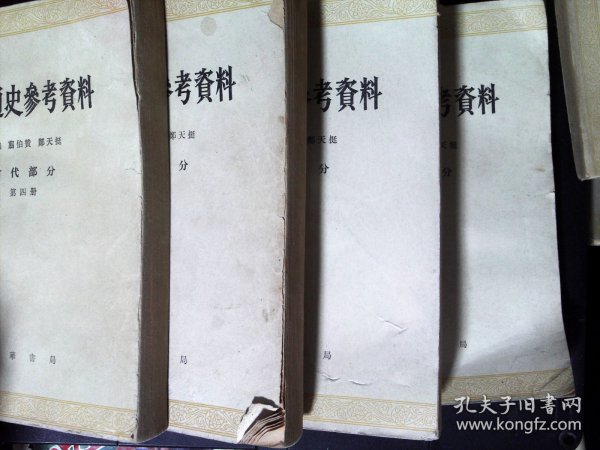 史參考資料
翦伯贊 鄭天挺
代部分
第四册
華書局
參考資料
鄭天挺
分
局
考資料
鄭天挺
分
局
考資料
天挺
分
局
孔夫子旧書网
www.kongfz.com